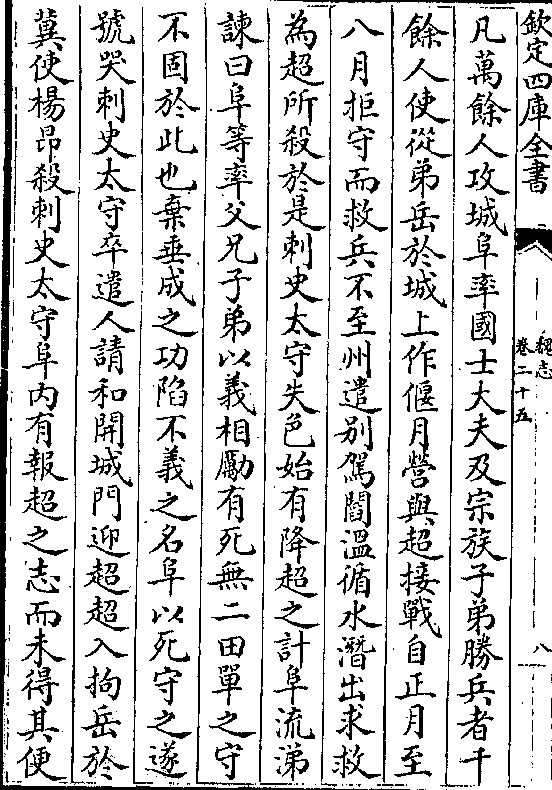 欽定四庫全書
魏志
卷二十五
八
凡萬餘人攻城阜率國士大夫及宗族子弟勝兵者千
餘人使從弟岳於城上作偃月營與超接戰自正月至
八月拒守而救兵不至州遣别駕閻溫循水潛出求救
為超所殺於是刺史太守失色始有降超之計阜流涕
諫曰阜等率父兄子弟以義相勵有死無二田單之守
不固於此也棄垂成之功陷不義之名阜以死守之遂
號哭刺史太守卒遣人請和開城門迎超超入拘岳於
冀使楊昂殺刺史太守阜内有報超之志而未得其便